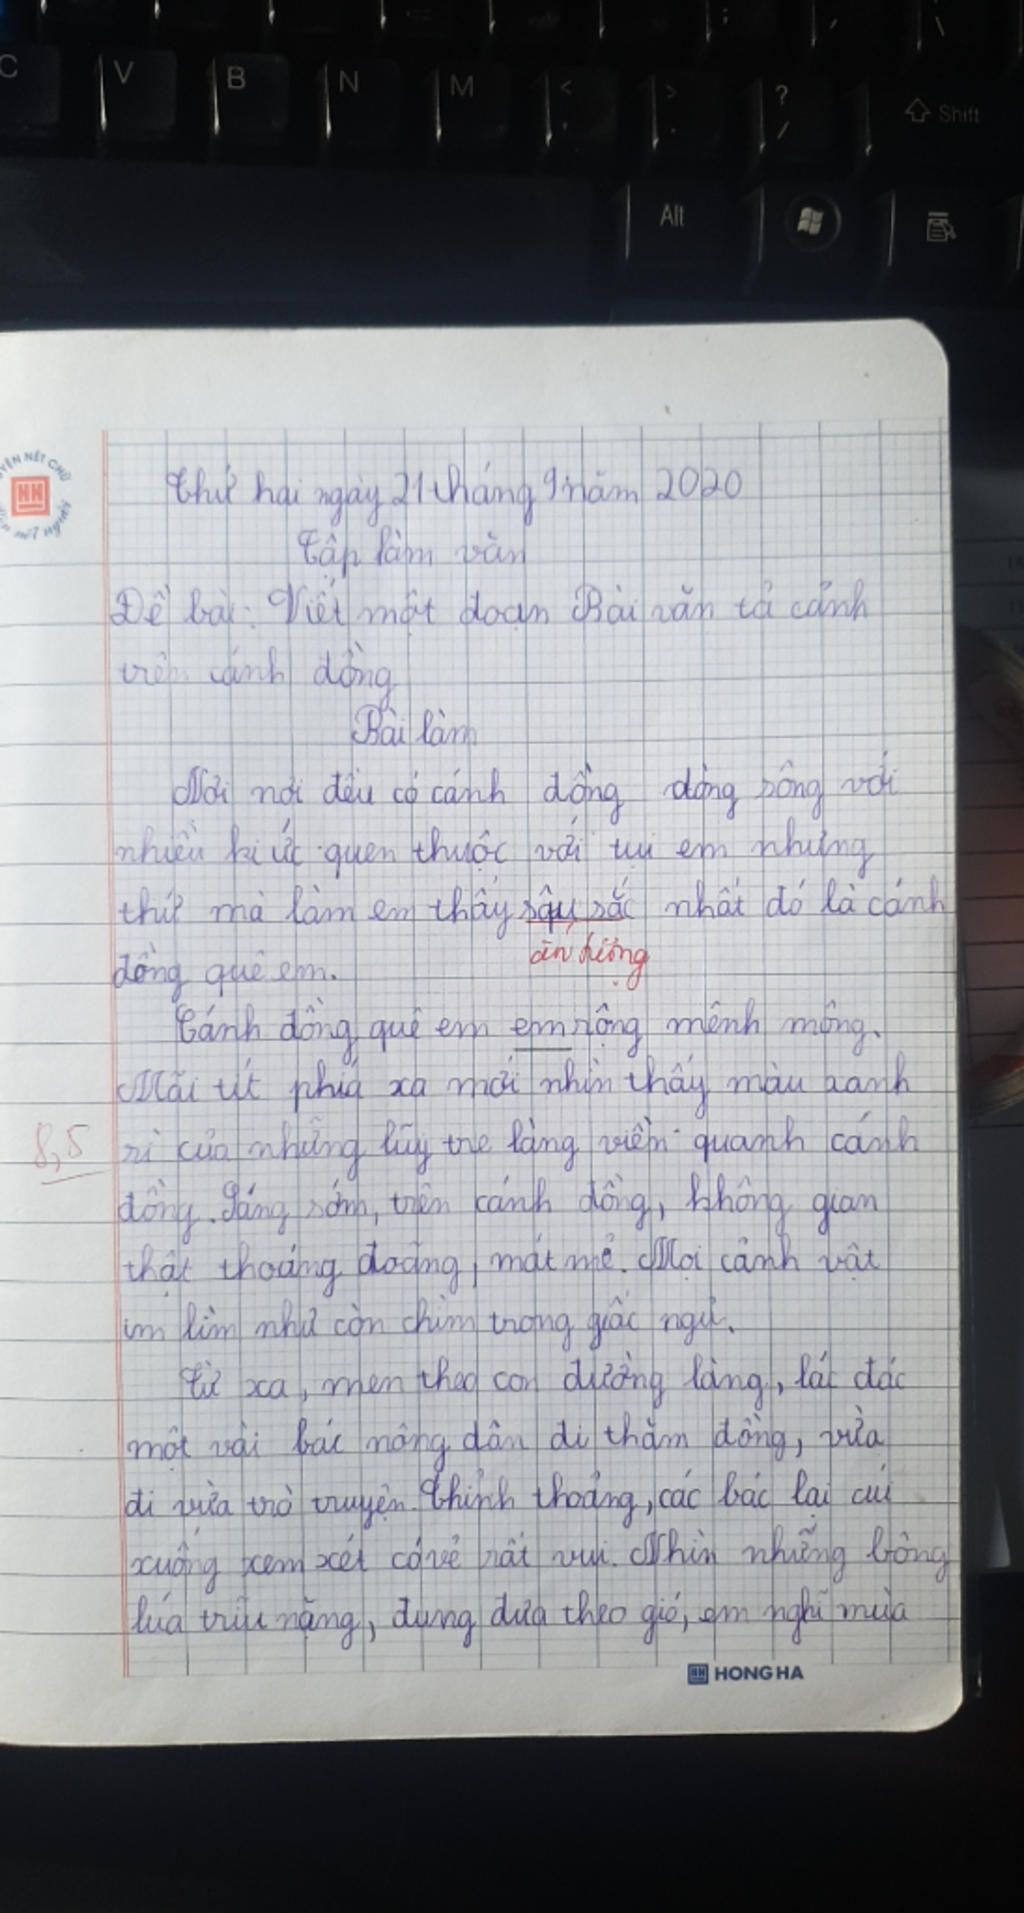 C V B N M < , > . ? / Shift
Alt
Thứ hai ngày 21 tháng 9 năm 2020
Tập làm văn
Đề bài: Viết một đoạn Bài văn tả cảnh
trên cánh đồng
Bài làm
Nơi nơi đều có cánh đồng dòng sông với
nhiều kí ức quen thuộc với tụi em nhưng
thứ mà làm em thấy sâu sắc nhất đó là cánh
ấn tượng
đồng quê em.
Cánh đồng quê em em rộng mênh mông.
Mãi tít phía xa mới nhìn thấy màu xanh
rì của những lũy tre làng viền quanh cánh
8,5
đồng. Sáng sớm, trên cánh đồng, không gian
thật thoáng đoãng, mát mẻ. Mọi cảnh vật
im lìm như còn chìm trong giấc ngủ.
Từ xa, men theo con đường làng, lác đác
một vài bác nông dân đi thăm đồng, vừa
đi vừa trò truyện. Thỉnh thoảng, các bác lại cúi
xuống xem xét có vẻ rất vui. Nhìn những bông
lúa trĩu nặng, đung đưa theo gió, em nghĩ mùa
HONG HA